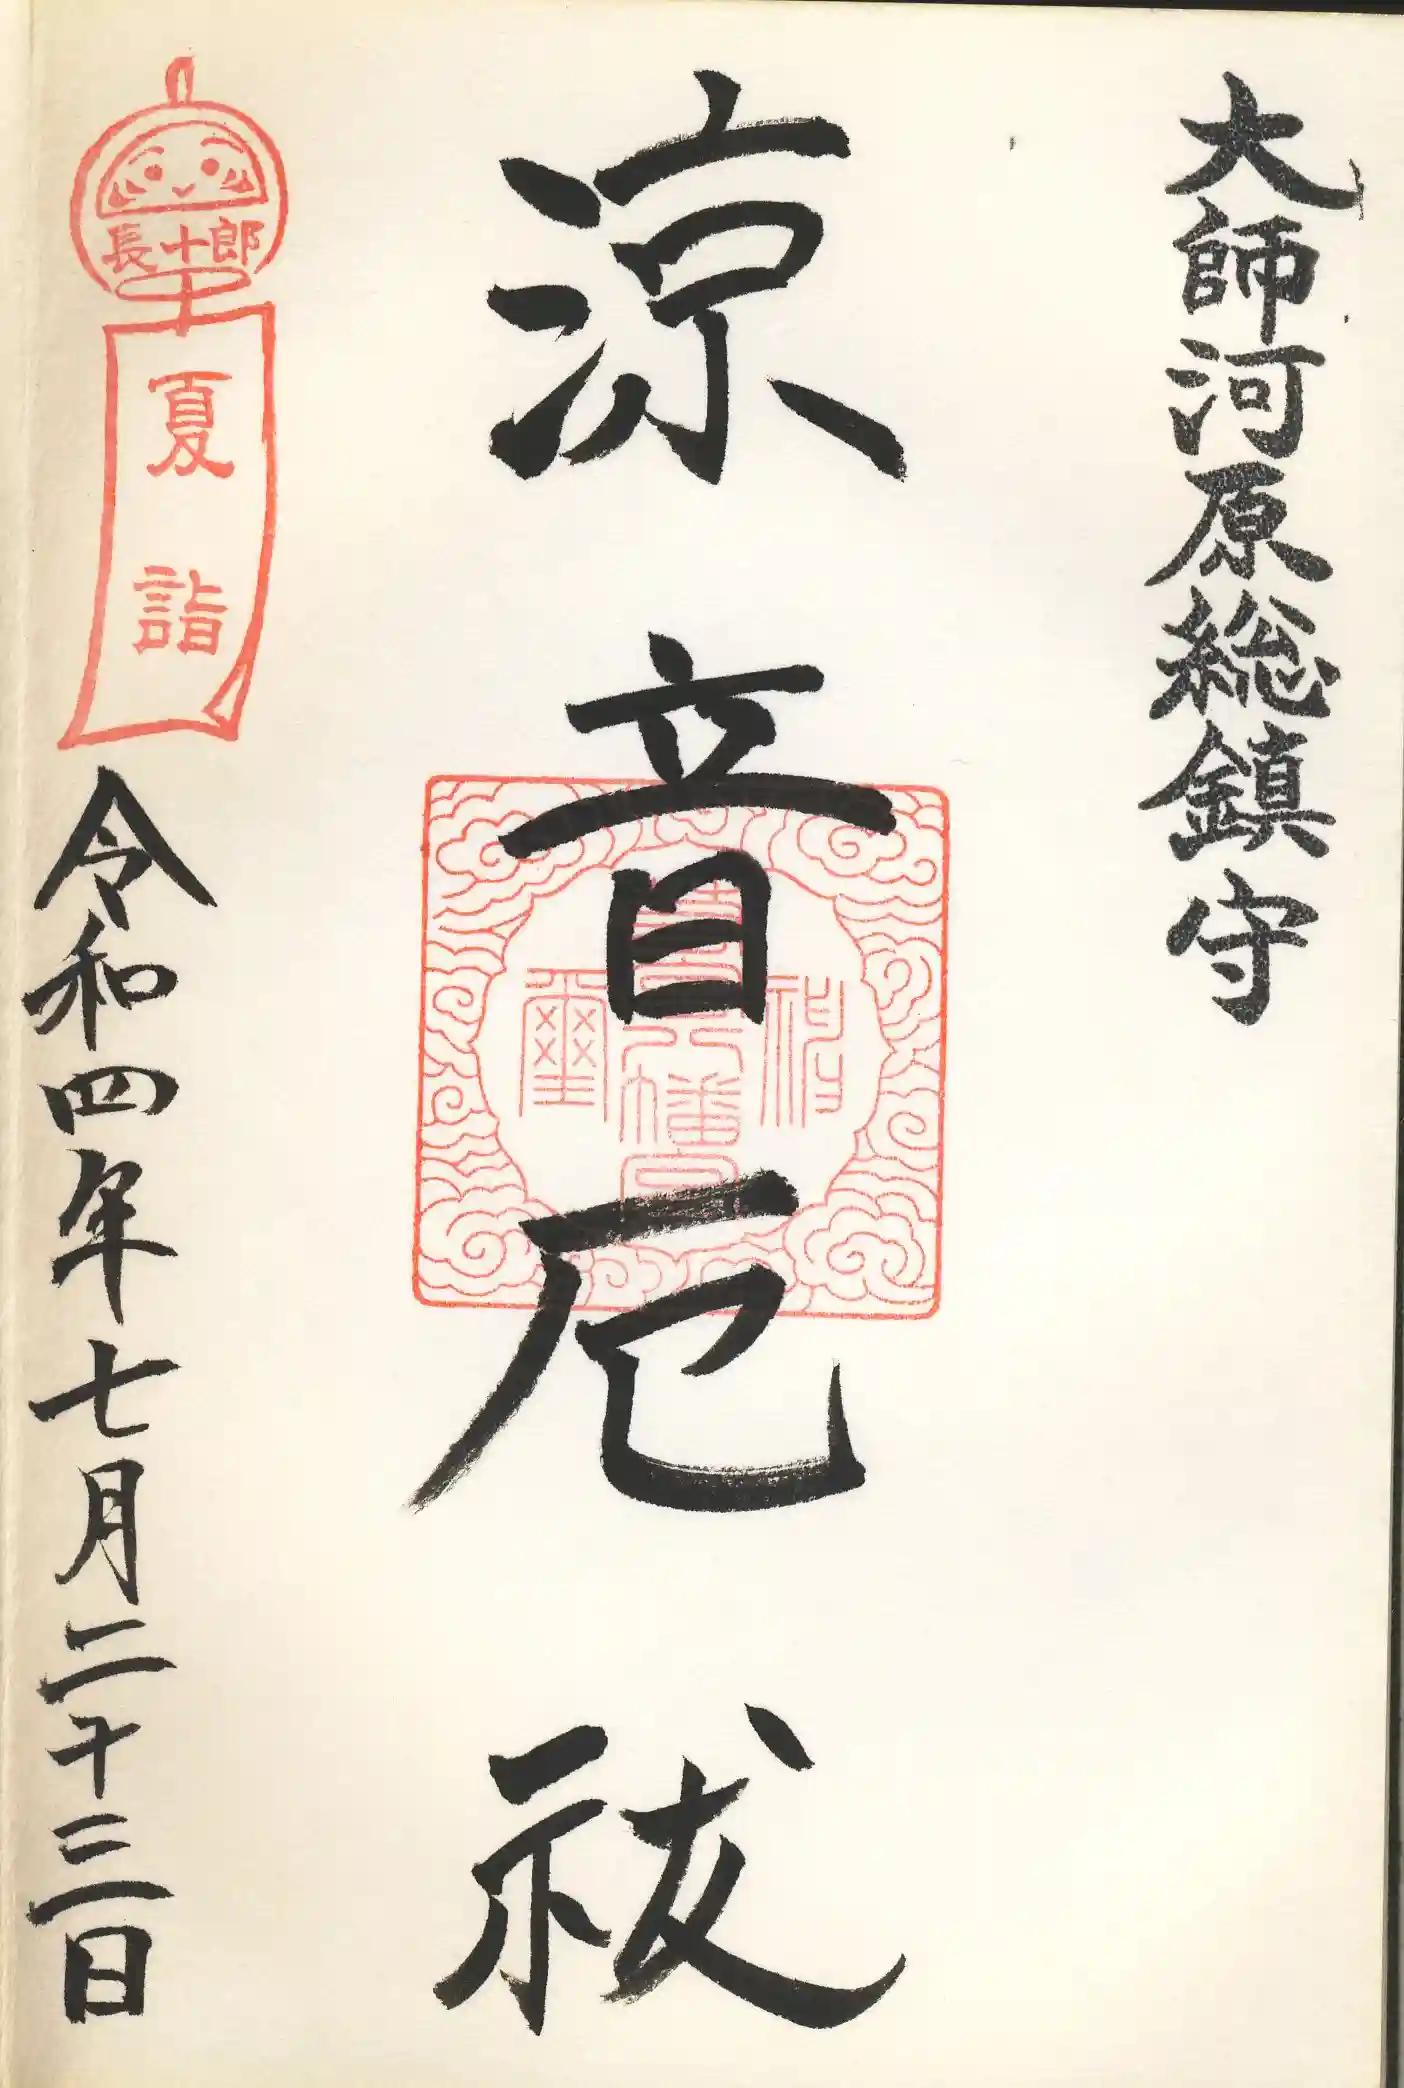 大師河原総鎮守
涼音厄祓
長十郎
夏詣
令和四年七月二十三日